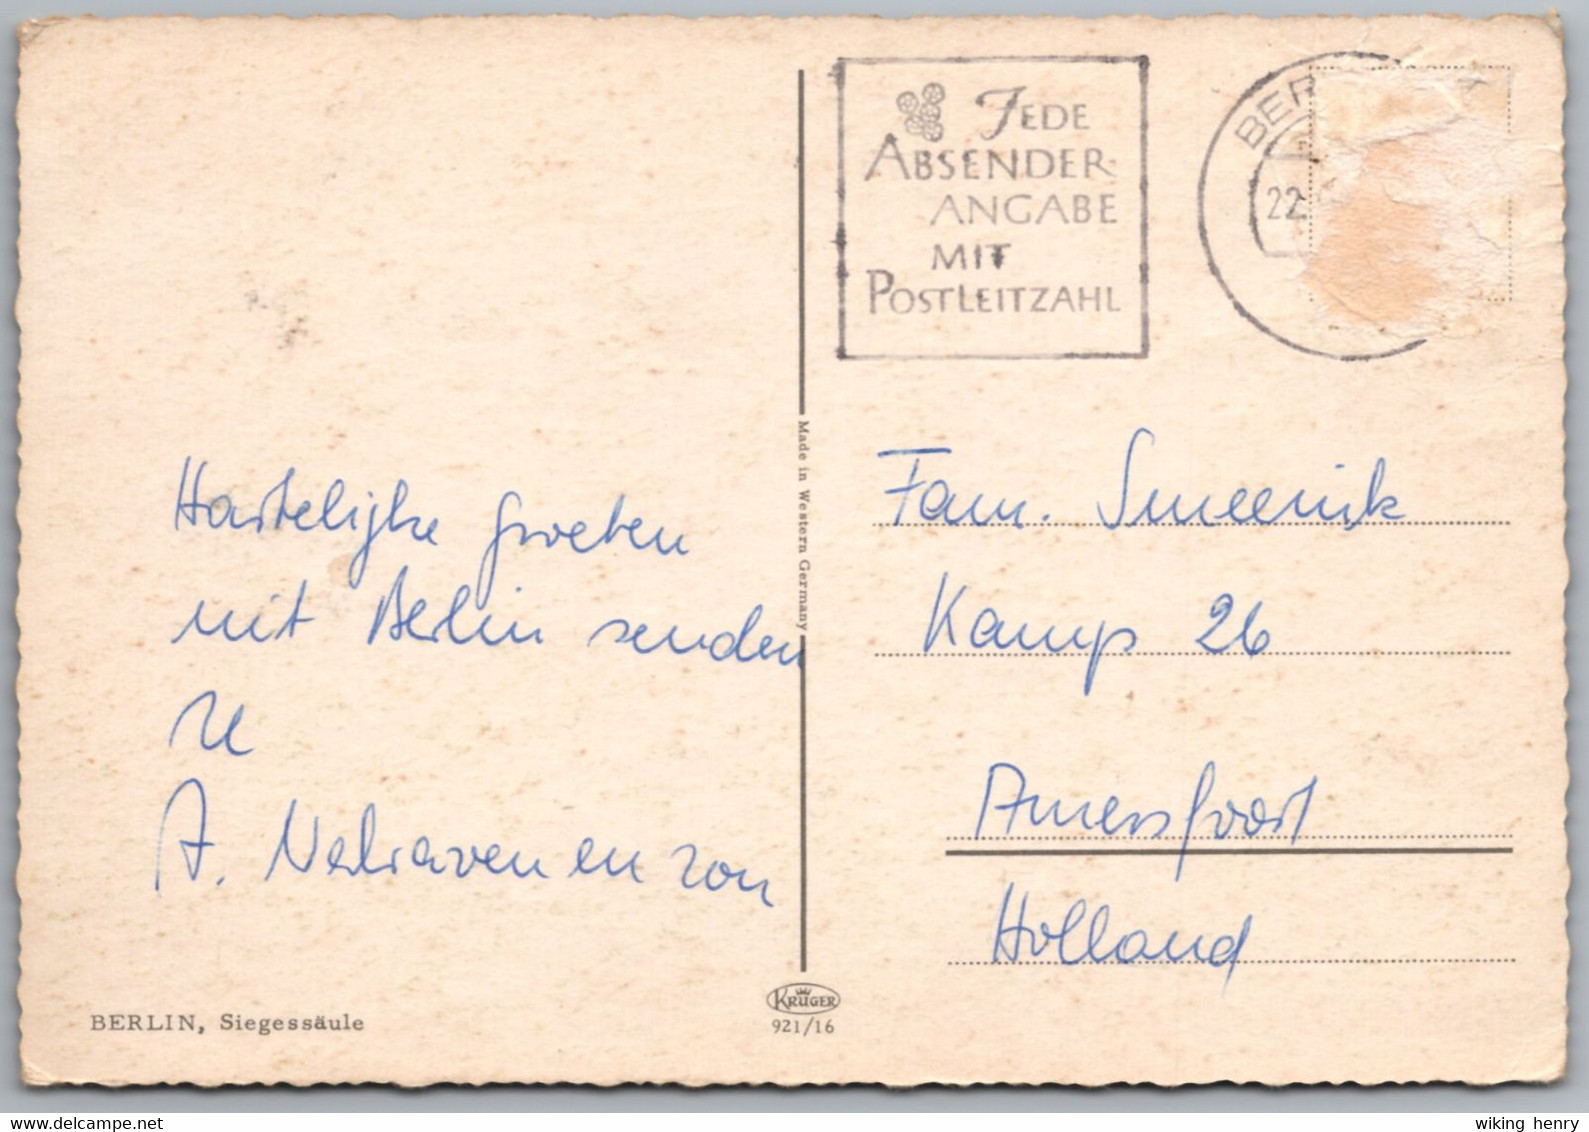 JEDE
ABSENDER-
ANGABE
MIT
POSTLEITZAHL
BER
22.
Made in Western Germany
Hartelijke groeten
uit Berlin zenden
A. Nelraven en zon
Fam. Smeenk
Kamp 26
Amersfoort
Holland
KRÜGER
921/16
BERLIN, Siegessäule
www.delcampe.net
wiking henry